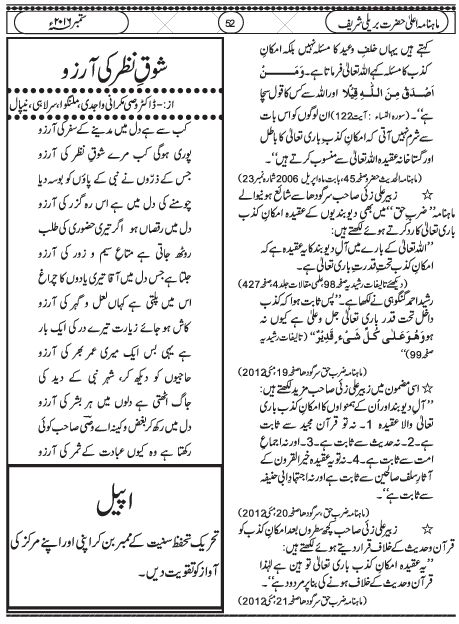 ماہنامہ اعلیٰ حضرت بریلی شریف
52
ستمبر ۲۰۱۶ء
کہتے ہیں یہاں خلف وعید کا مسئلہ نہیں بلکہ امکان
کذب کا مسئلہ ہے کہ اللہ تعالیٰ فرماتا ہے۔ وَمَنْ
اَصْدَقُ مِنَ اللّٰہِ قِیْلًا اور اللہ سے کس کا قول سچا
ہے“۔ (سورہ النساء: آیت 122) ان لوگوں کو اس بات
سے شرم نہیں آتی کہ امکان کذب باری تعالیٰ کا باطل
اور گستاخانہ عقیدہ اللہ تعالیٰ سے منسوب کرتے ہیں“۔
(ماہنامہ الحدیث حضرو صفحہ 45، بابت ماہ اپریل 2006 شمارہ نمبر 23)
☆ زبیر علی زئی صاحب سرگودھا سے شائع ہونیوالے
ماہنامہ ”ضرب حق“ میں بھی دیوبندیوں کے عقیدہ امکان کذب
باری تعالیٰ کا رد کرتے ہوئے لکھتے ہیں:
”اللہ تعالیٰ کے بارے میں آل دیوبند کا یہ عقیدہ ہے کہ
امکان کذب تحت قدرت باری تعالیٰ ہے۔
(دیکھئے تالیفات رشیدیہ صفحہ 98، علمی مقالات جلد 4، صفحہ 427)
رشید احمد گنگوہی نے لکھا ہے۔ ”پس ثابت ہوا کہ کذب
داخل تحت قدرت باری تعالیٰ جل وعلیٰ ہے کیوں نہ
ہو وَھُوَ عَلیٰ کُلِّ شَیْءٍ قَدِیْرٌ“ (تالیفات رشیدیہ
صفحہ 99)“
(ماہنامہ ضرب حق سرگودھا صفحہ 19، مئی 2012)
☆ اسی مضمون میں زبیر علی زئی صاحب مزید لکھتے ہیں:
”آل دیوبند اور اُن کے ہمنواؤں کا امکان کذب باری
تعالیٰ والا عقیدہ 1۔ نہ تو قرآن مجید سے ثابت
ہے۔ 2۔ نہ حدیث سے ثابت ہے۔ 3۔ اور نہ اجماع
امت سے ثابت ہے۔ 4۔ نہ تو یہ عقیدہ خیر القرون کے
آثار سلف صالحین سے ثابت ہے اور نہ اجتہاد ابی حنیفہ
سے ثابت ہے“۔
(ماہنامہ ضرب حق، سرگودھا صفحہ 20، مئی 2012)
☆ زبیر علی زئی صاحب کچھ سطروں بعد امکان کذب کو
قرآن وحدیث کے خلاف قرار دیتے ہوئے لکھتے ہیں:
”یہ عقیدہ امکان کذب باری تعالیٰ توہین ہے لہٰذا
قرآن وحدیث کے خلاف ہونے کی بنا پر مردود ہے“۔
(ماہنامہ ضرب حق سرگودھا صفحہ 21، مئی 2012)
شوقِ نظر کی آرزو
از:- ڈاکٹر وصی مکرانی واجدی، ملنگوا، سرلاہی، نیپال
کب سے ہے دل میں مدینے کے سفر کی آرزو
پوری ہوگی کب مرے شوقِ نظر کی آرزو
جس کے ذرّوں نے نبی کے پاؤں کو بوسہ دیا
چومنے کی دل میں ہے اس رہ گزر کی آرزو
دل میں رقصاں ہو اگر تیری حضوری کی طلب
روٹھ جاتی ہے متاعِ سیم و زر کی آرزو
جلتا ہے جس دل میں آقا تیری یادوں کا چراغ
اس میں پلتی ہے کہاں لعل و گہر کی آرزو
کاش ہو جائے زیارت تیرے در کی ایک بار
ہے یہی بس ایک میری عمر بھر کی آرزو
حاجیوں کو دیکھ کر، شہر نبی کے دید کی
جاگ اٹھتی ہے دلوں میں ہر بشر کی آرزو
دل میں رکھ کر بغض و کینہ اے وصی صاحب کوئی
رکھتا ہے وہ کیوں عبادت کے ثمر کی آرزو
اپیل
تحریک تحفظ سنیت کے ممبر بن کر اپنی اور اپنے مرکز کی
آواز کو تقویت دیں۔